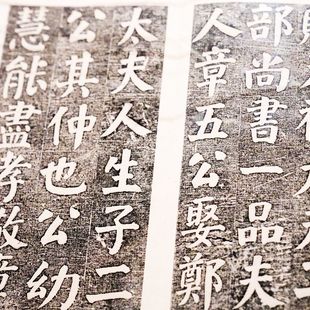 部尚書一品夫
人章五公娶鄭
太夫人生子二
公其仲也公幼
慧能盡孝敬